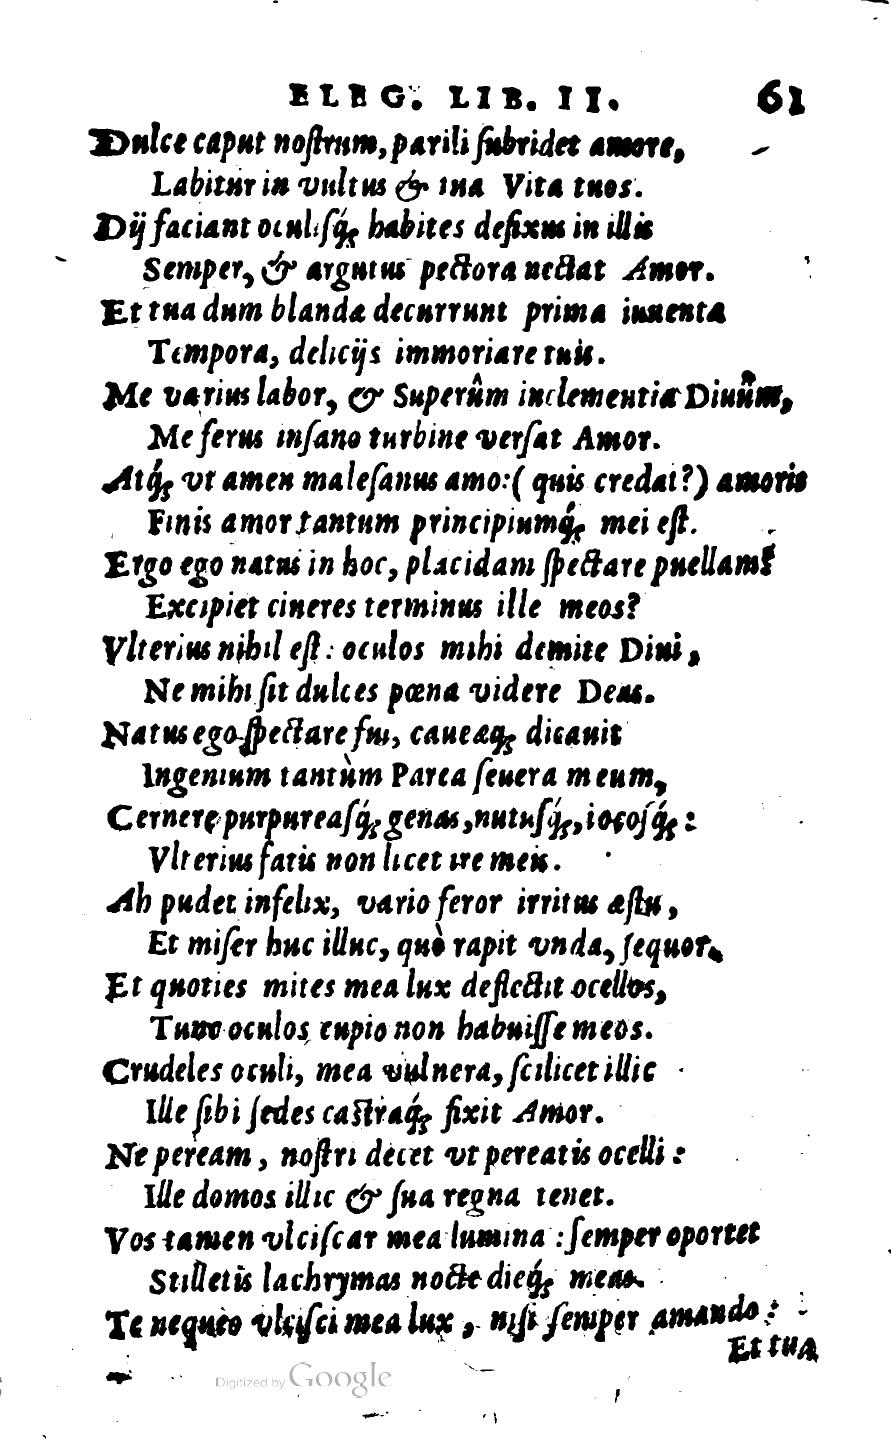 ELEG. LIB. II. 61
Dulce caput noſtrum, parili ſubridet amore,
Labitur in vultus & tua Vita tuos.
Dij faciant oculiſq́; habites defixus in illis
Semper, & argutus pectora nectat Amor.
Et tua dum blanda decurrunt prima iuuenta
Tempora, delicijs immoriare tuis.
Me varius labor, & Superûm inclementia Diuûm,
Me ferus inſano turbine verſat Amor.
Atq́; vt amen maleſanus amo: (quis credat?) amoris
Finis amor tantum principiumq́; mei eſt.
Ergo ego natus in hoc, placidam ſpectare puellam?
Excipiet cineres terminus ille meos?
Vlterius nihil eſt: oculos mihi demite Diui,
Ne mihi ſit dulces pœna videre Deas.
Natus ego ſpectare fui, caueaq; dicauit
Ingenium tantùm Parca ſeuera meum,
Cernere purpureaſq́; genas, nutuſq́;, iocoſq́;:
Vlterius fatis non licet ire meis.
Ah pudet infelix, vario feror irritus æſtu,
Et miſer huc illuc, quò rapit vnda, ſequor.
Et quoties mites mea lux deflectit ocellos,
Tunc oculos cupio non habuiſſe meos.
Crudeles oculi, mea vulnera, ſcilicet illic
Ille ſibi ſedes caſtraq́; fixit Amor.
Ne peream, noſtri decet vt pereatis ocelli:
Ille domos illic & ſua regna tenet.
Vos tamen vlciſcar mea lumina: ſemper oportet
Stilletis lachrymas nocte dieq́; meas.
Te nequeo vlciſci mea lux, niſi ſemper amando:
Et tua
Digitized by Google